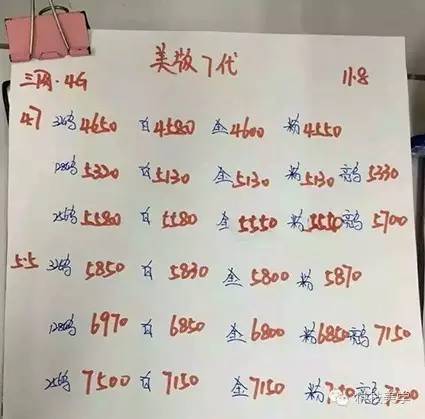 美版7代
三网·4G 11.8
4.7 32G 4650 白 4580 金 4600 粉 4550
128G 5320 白 5130 金 5130 粉 5130 亮 5330
256G 5580 白 5580 金 5550 粉 5550 亮 5700
5.5 32G 5850 白 5830 金 5800 粉 5870
128G 6970 白 6850 金 6800 粉 6850 亮 7150
256G 7500 白 7150 金 7150 粉